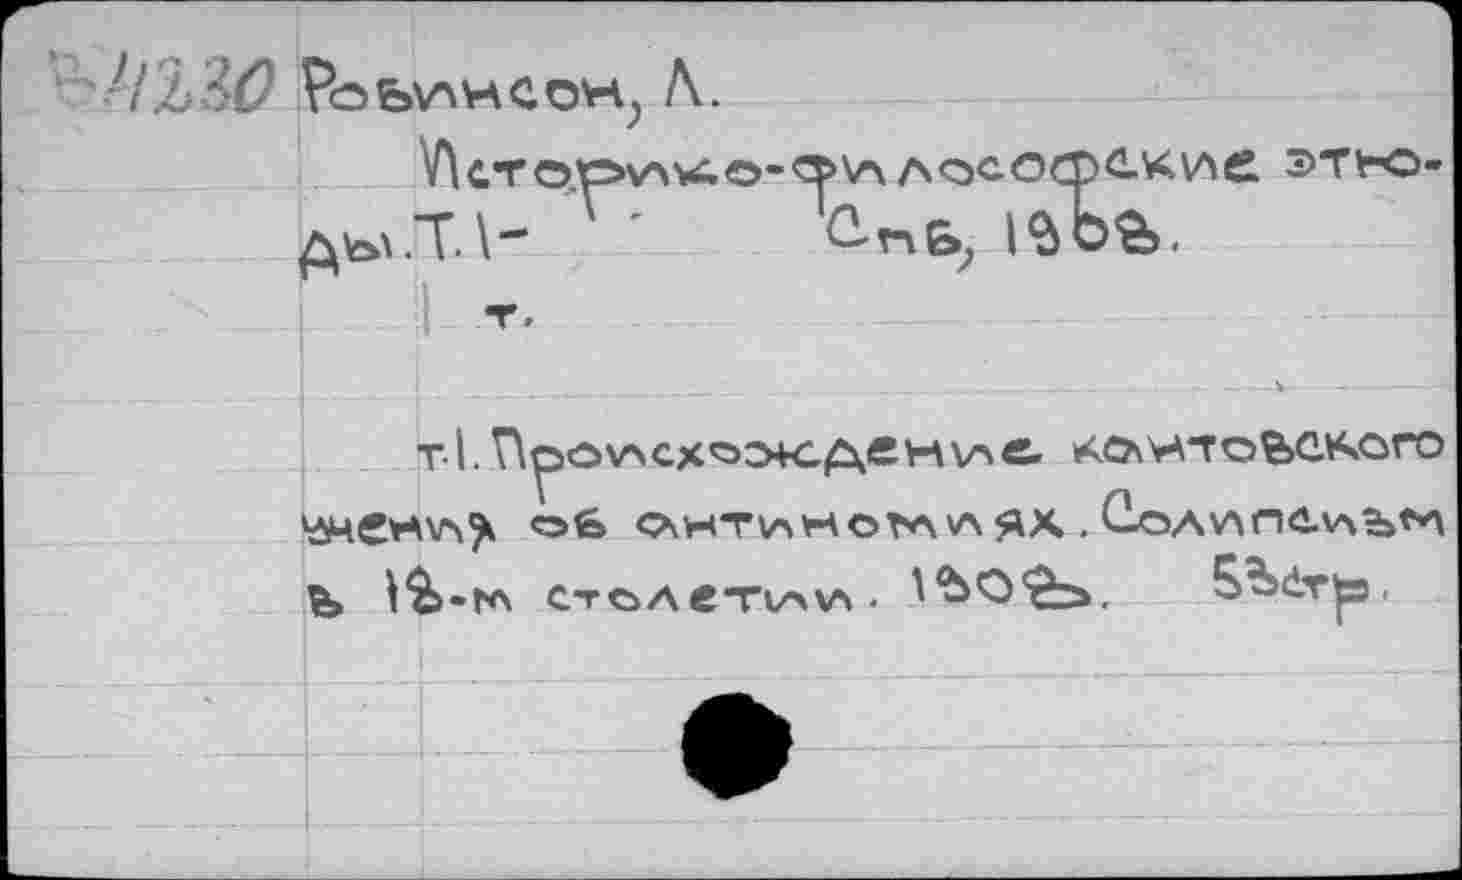 Робинсон, Л.
Историко-философские этю-
ды. Т. 1- Спб,
т.
т. 1. Происхождение кантовского
учения об антиномиях. Солипсизм
в 18-м столетии. стр.